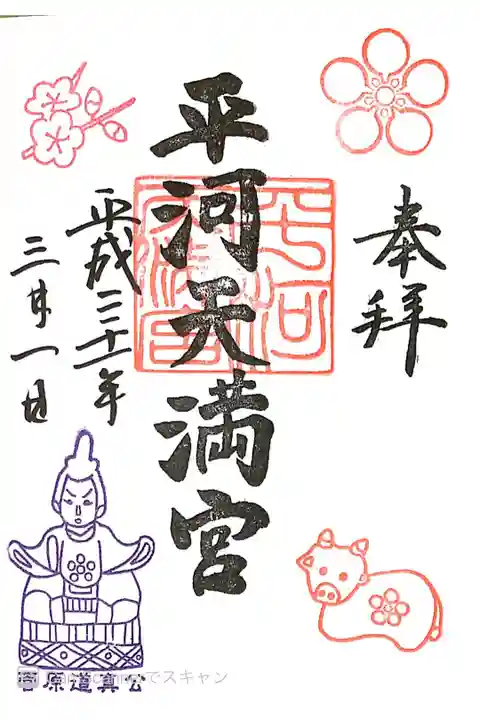 奉拝
平河天満宮
平河天満宮
平成三十一年
三月一日
菅原道真公
でスキャン